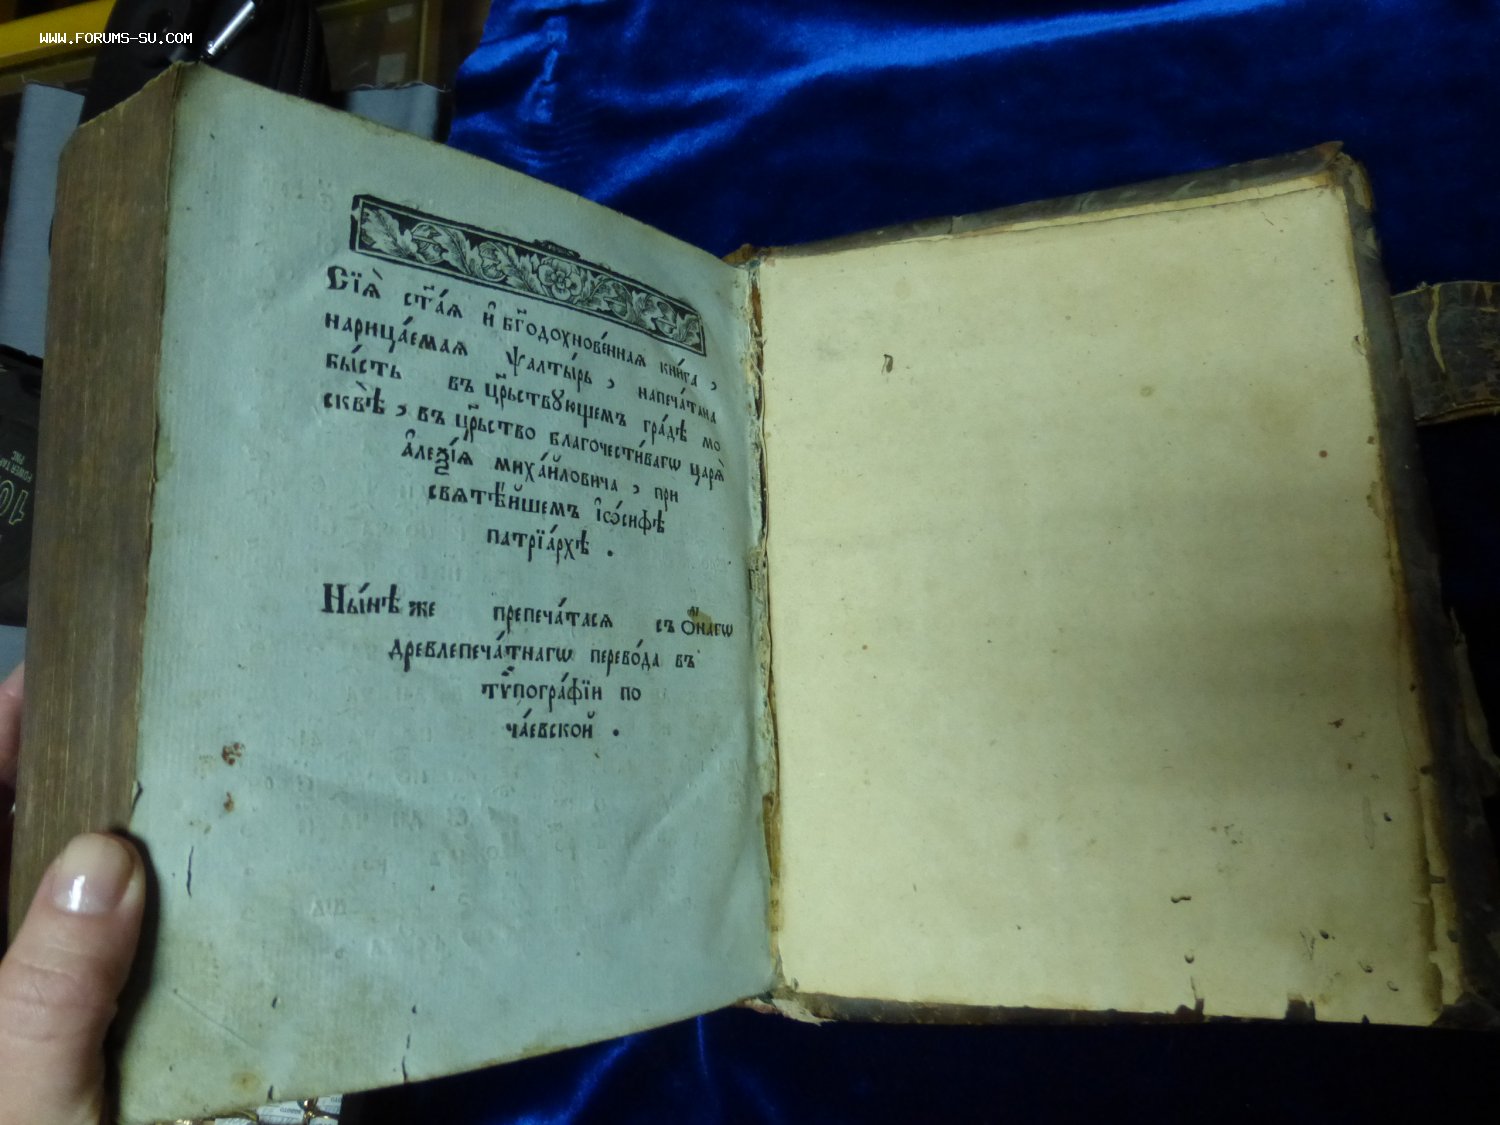 WWW.FORUMS-SU.COM
Сїѧ̀ ст҃а́ѧ и҆ бг҃одохнове́ннаѧ кни́га ,
нарица́емаѧ ѱалты́рь , напеча́тана
бы́сть въ цр҃ьствꙋющемъ гра́дѣ мо
сквѣ̀ , въ цр҃ьство благочести́вагѡ царѧ̀
а҆леѯі́ѧ миха́йловича , при
свѧтѣ́йшемъ і҆ѡ́сифѣ
патрїа́рхѣ .
Ны́нѣ же препеча́тасѧ съ ѻ҆́нагѡ
древлепеча́тнагѡ перево́да въ
тѷпогра́фїи по
ча́евской .
10